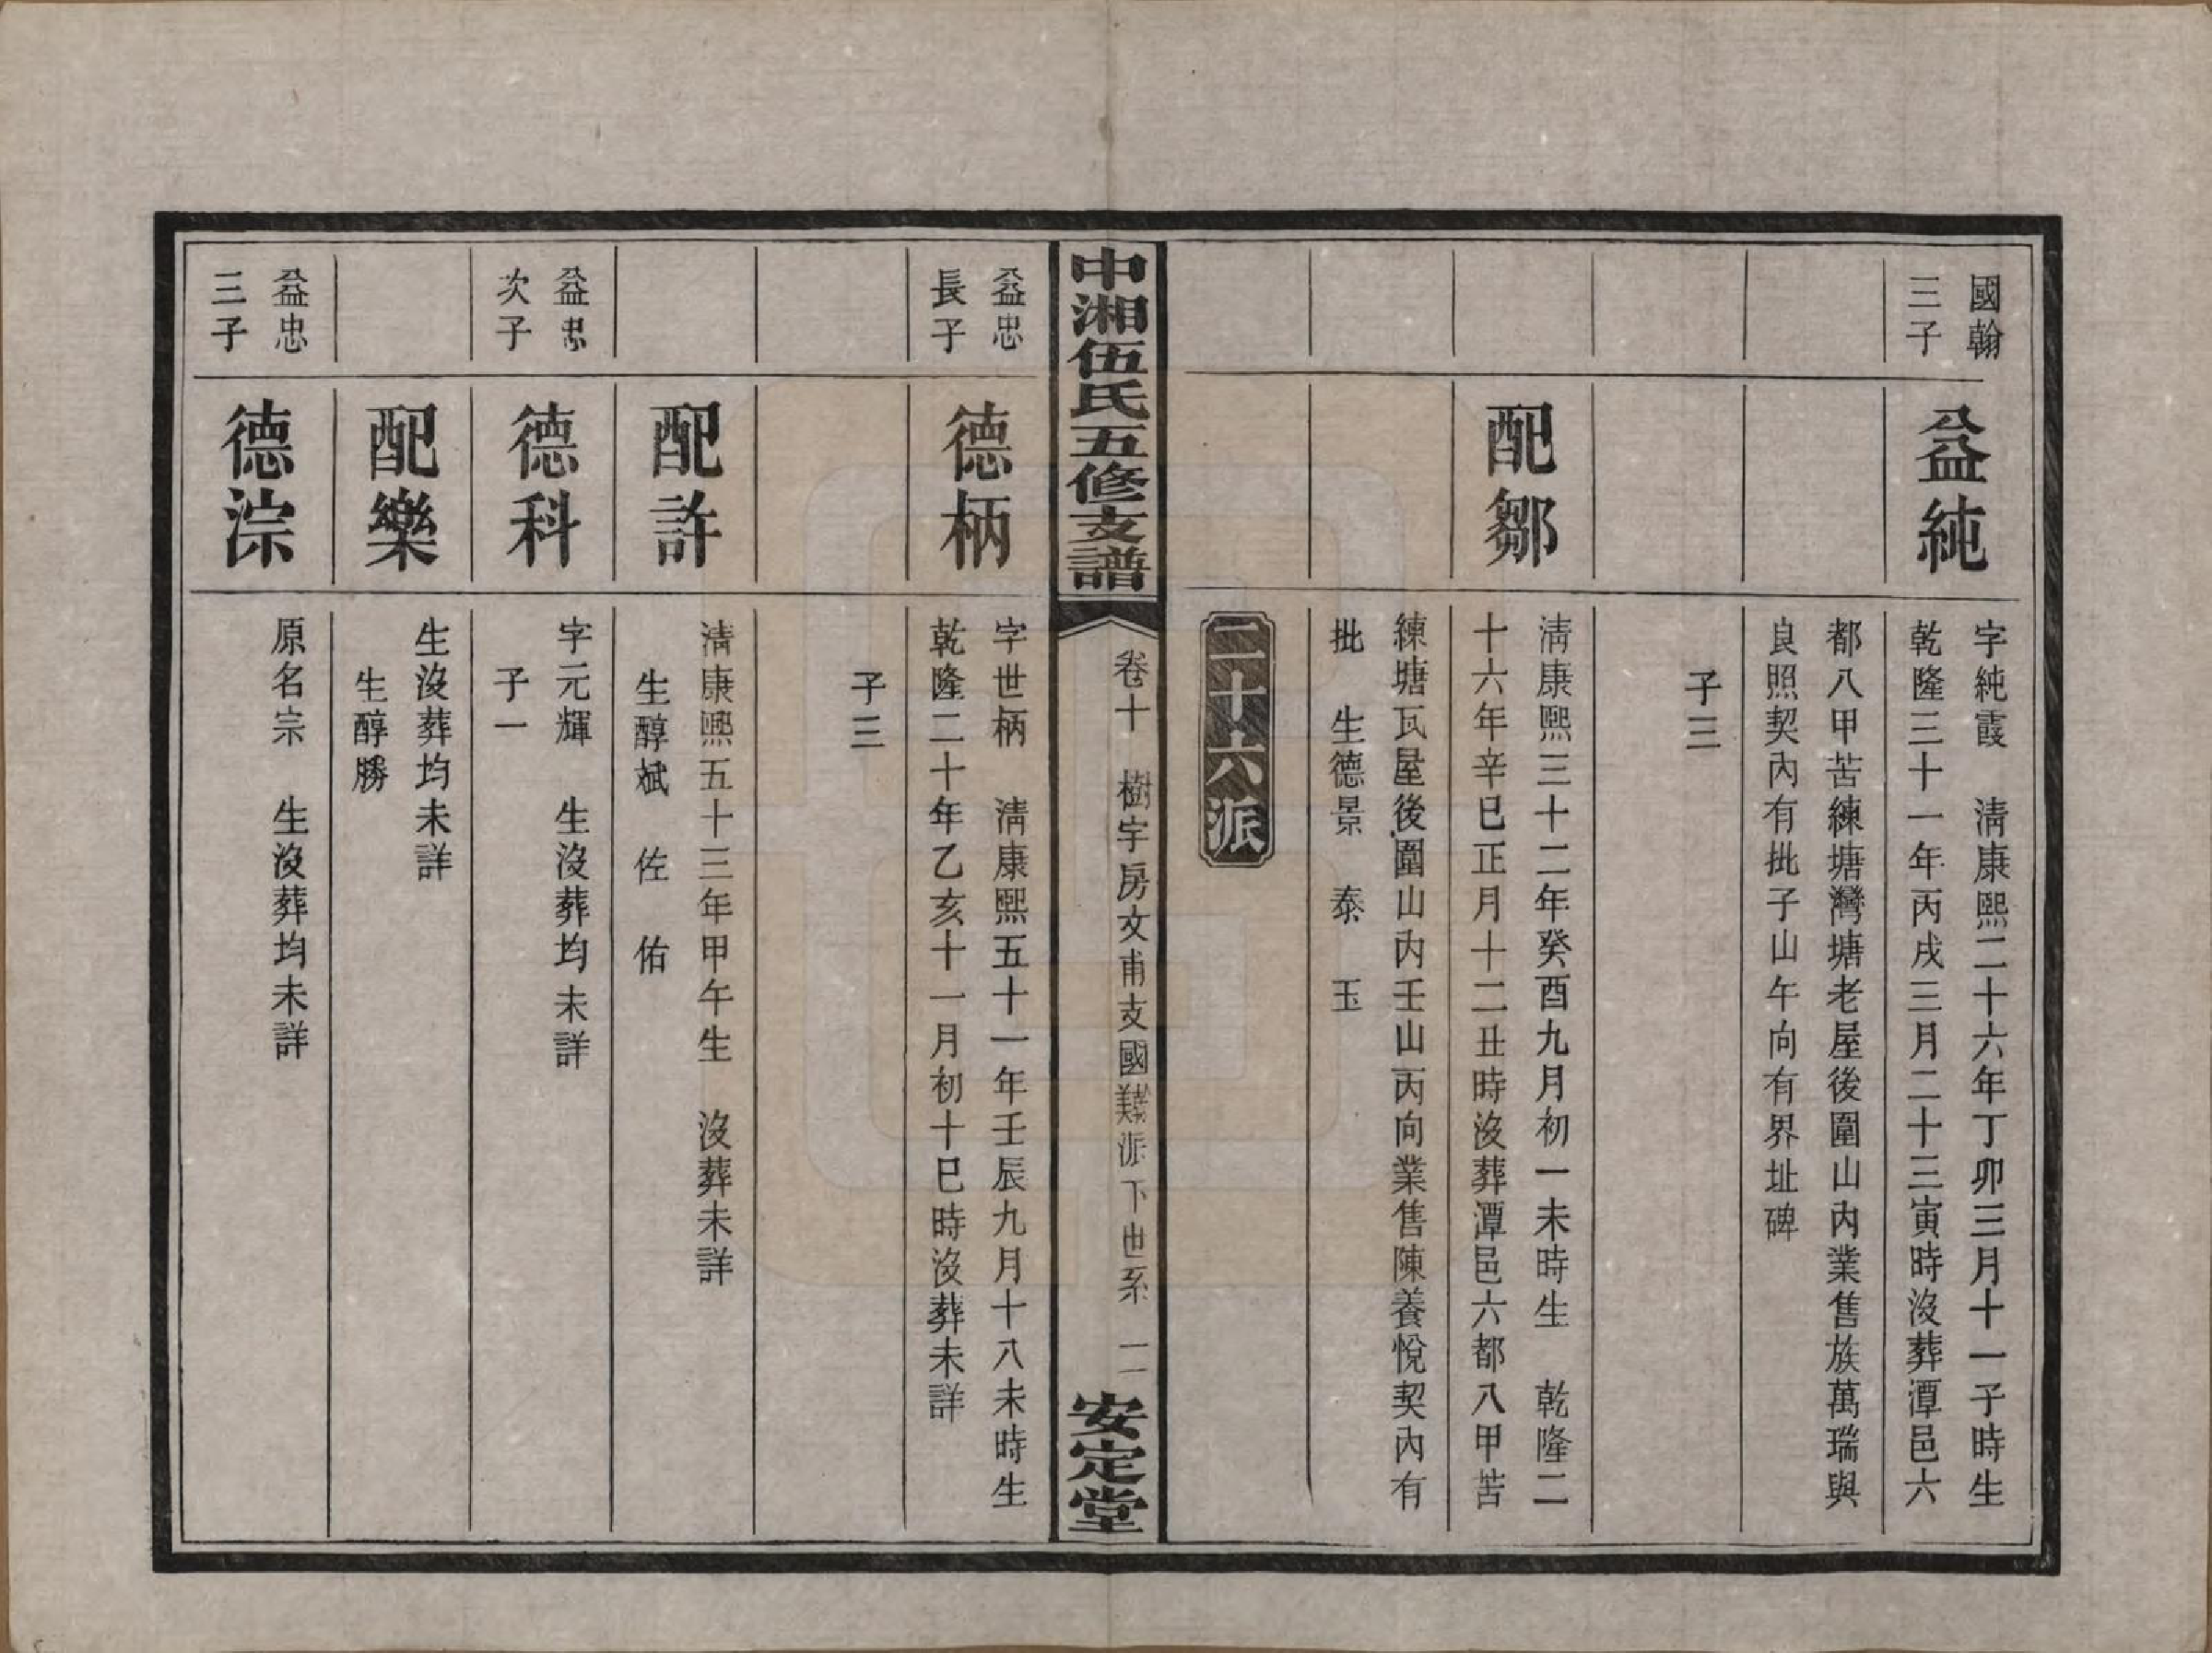 國翰
三子
益純
字純霞　淸康熙二十六年丁卯三月十一子時生
乾隆三十一年丙戌三月二十三寅時沒葬潭邑六
都八甲苦練塘灣塘老屋後圍山內業售族萬瑞與
良照契內有批子山午向有界址碑
子三
配鄒
淸康熙三十二年癸酉九月初一未時生　乾隆二
十六年辛巳正月十二丑時沒葬潭邑六都八甲苦
練塘瓦屋後圍山內壬山丙向業售陳養悅契內有
批　生德景　泰　玉
二十六派
中湘伍氏五修支譜
卷十　樹字房文甫支國派下世系　二
安定堂
益忠
長子
德柄
字世柄　淸康熙五十一年壬辰九月十八未時生
乾隆二十年乙亥十一月初十巳時沒葬未詳
子三
配許
淸康熙五十三年甲午生　沒葬未詳
生醇斌　佐　佑
益忠
次子
德科
字元輝　生沒葬均未詳
子一
配樂
生沒葬均未詳
生醇勝
益忠
三子
德淙
原名宗　生沒葬均未詳